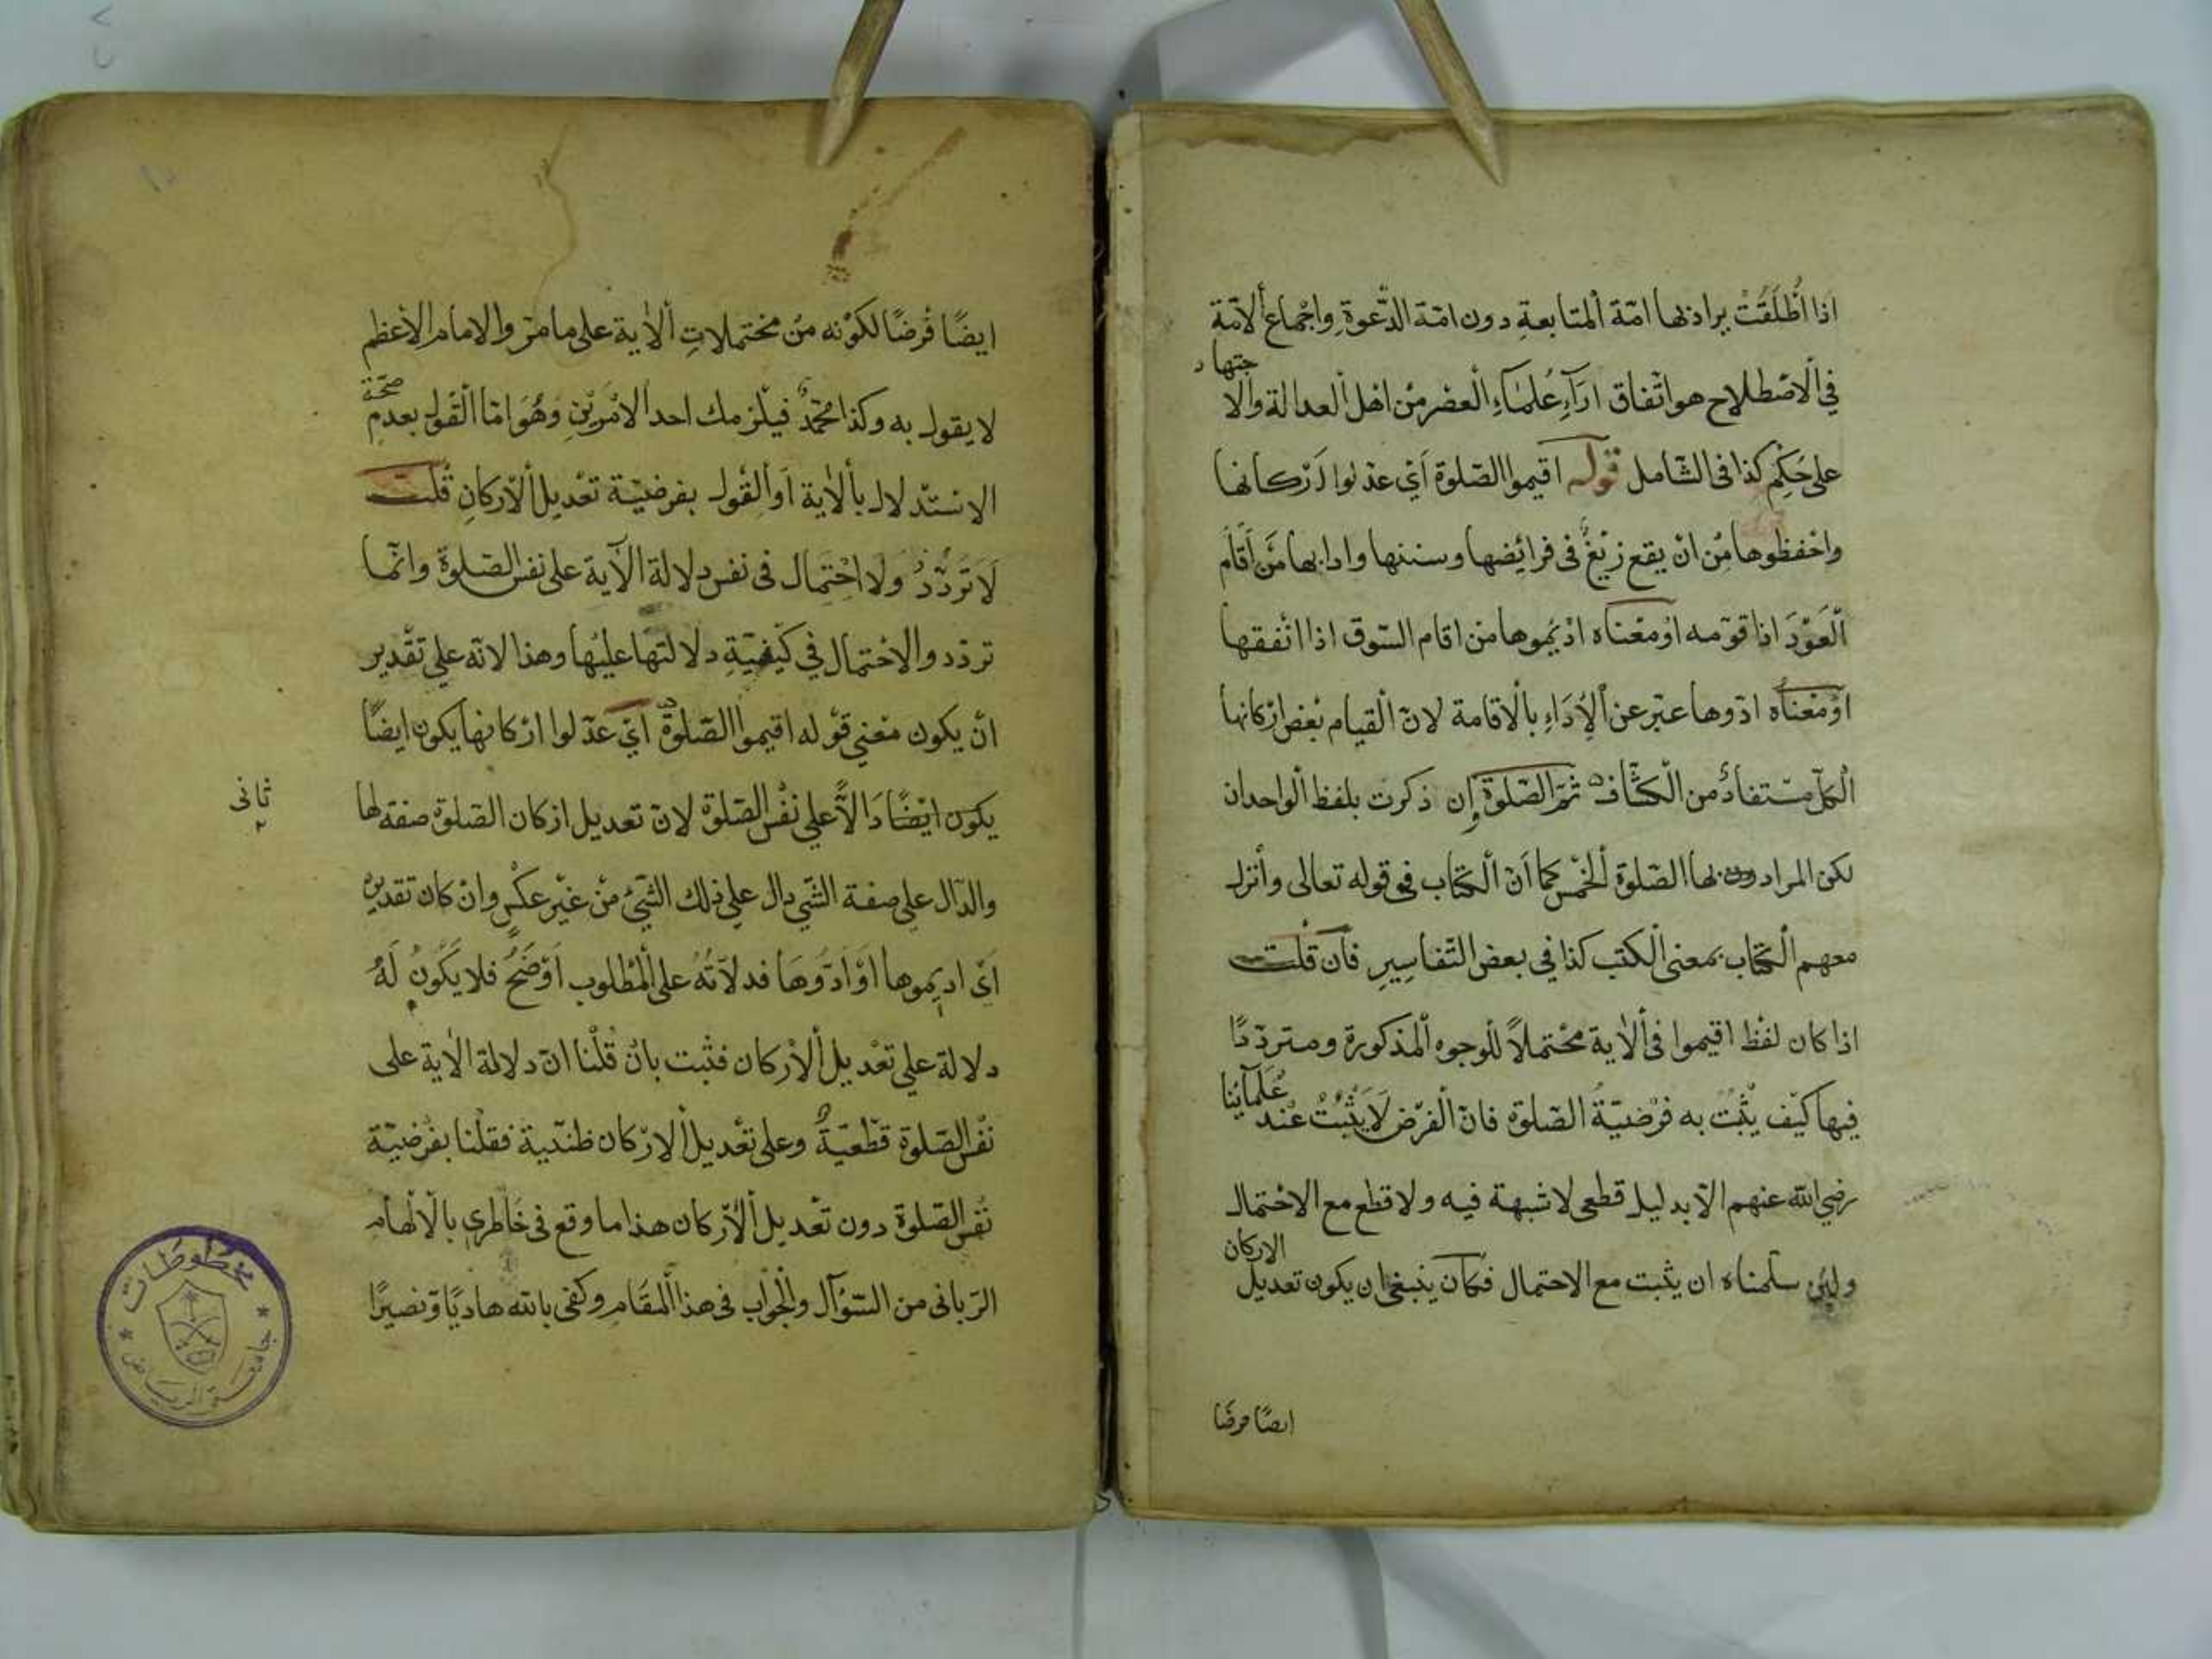 اذا اُطْلِقَتْ يراد بها امّة المتابعةِ دون امّة الدّعوةِ واِجْماع الامّة
في الاصْطلاح هو اتّفاق اراۤءِ عُلَماۤءِ الْعصْر مِنْ اهْل العدالة والا
جتهاد
على حُكْمٍ كذا فى الشّامل قوله اقيموا الصّلوة اَيْ عدّلوا اَرْكانها
واحْفظوها مِن انْ يقع زيْغٌ فى فرائضها وسننها وادابها مِنْ اَقام
الْعَوْدَ اذا قوّمه اوْ معْناه اديْموها من اقام السّوق اذا انْفقها
اوْ مَعْناه ادّوها عبّر عن الْاَدَاءِ بالْاقامة لانّ الْقيام بعْض ارْكانها
الْكلّ مسْتفادٌ من الْكشّاف ثمّ الصّلوة اِن ذكرت بلفظ الْواحدان
لكن المراد بها الصّلوة الْخمْس كما اَنّ الْكتاب في قوله تعالى وأنزل
معهم الْكتاب بمعنى الْكتب كذا في بعض التّفاسِيرِ فاَن قلْت
اذا كان لفْظ اقيموا فى الْاية محْتملاً للْوجوه الْمذكورة ومتردّدًا
فيها كيْف يثْبُت به فرْضيّةُ الصّلوة فانّ الْفرْض لَا يَثْبُتُ عنْد
عُلَمآئِنا
رضي الله عنهم الّا بدليل قطعى لا شبهة فيه ولا قطع مع الاحْتمال
ولئن سلّمناه ان يثبت مع الاحتمال فكاَن ينبغى ان يكون تعديل
الاركان
ايضًا فرضًا
ايضًا فرْضًا لكوْنه منْ محْتملاتِ الْاٰية على ما مرّ والامام الاعظم
لا يقول به وكذا محمّدٌ فيلْزمك احد الامْريْنِ وَهُوَ امّا الْقوْل بعدمِ
صحّة
الاسْتدلال بالْاٰية اَو الْقول بفرضيّة تعْديل الْارْكانِ قُلْت
لَا تَرَدُّدَ وَلا احْتِمَال فى نفس دلالة الآية على نفس الصّلوة وانّما
تردّد والاحْتمال في كيْفيّةِ دلالتها عليْها وهذا لانّه على تقْدير
انْ يكون معْنى قوْله اقيموا الصّلوة اَيْ عدّلوا ارْكانها يكون ايضًا
يكون ايْضًا دَالًّا على نفْس الصّلوة لانّ تعديل ازكان الصّلوة صفة لها
ثانى
والدّال على صفة الشّي دال على ذلك الشّئ منْ غيْر عكْس وانْ كان تقديره
اَىْ اديموها اوْ ادّوهَا فدلالتُهُ على الْمطْلوب اَوْضَحُ فلا يكُونُ لَهُ
دلالة على تعْديل الْارْكان فثبت بانْ قُلْنا انّ دلالة الاية على
نفْس الصّلوة قطْعيّةٌ وعلى تعْديل الارْكان ظنّية فقلْنا بفرْضيّة
نفْس الصّلوة دون تعْديل الْاَرْكان هذا ما وقع فى خَاطرى بالْالْهام
الرّبانى من السّؤآل والْجواب فى هذا الْمقَام وكفى بالله هاديًا ونصيرًا
مخطوطات
جامعة الرياض